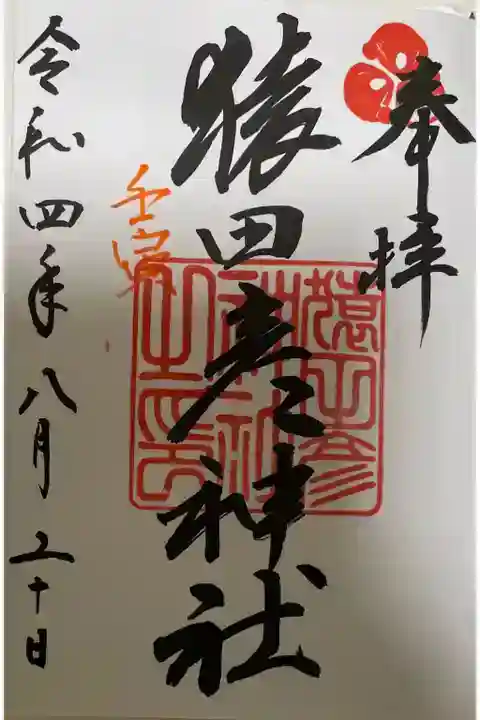 奉拝
猿田彦神社
猿田彦神社之印
壬寅
令和四年八月二十日